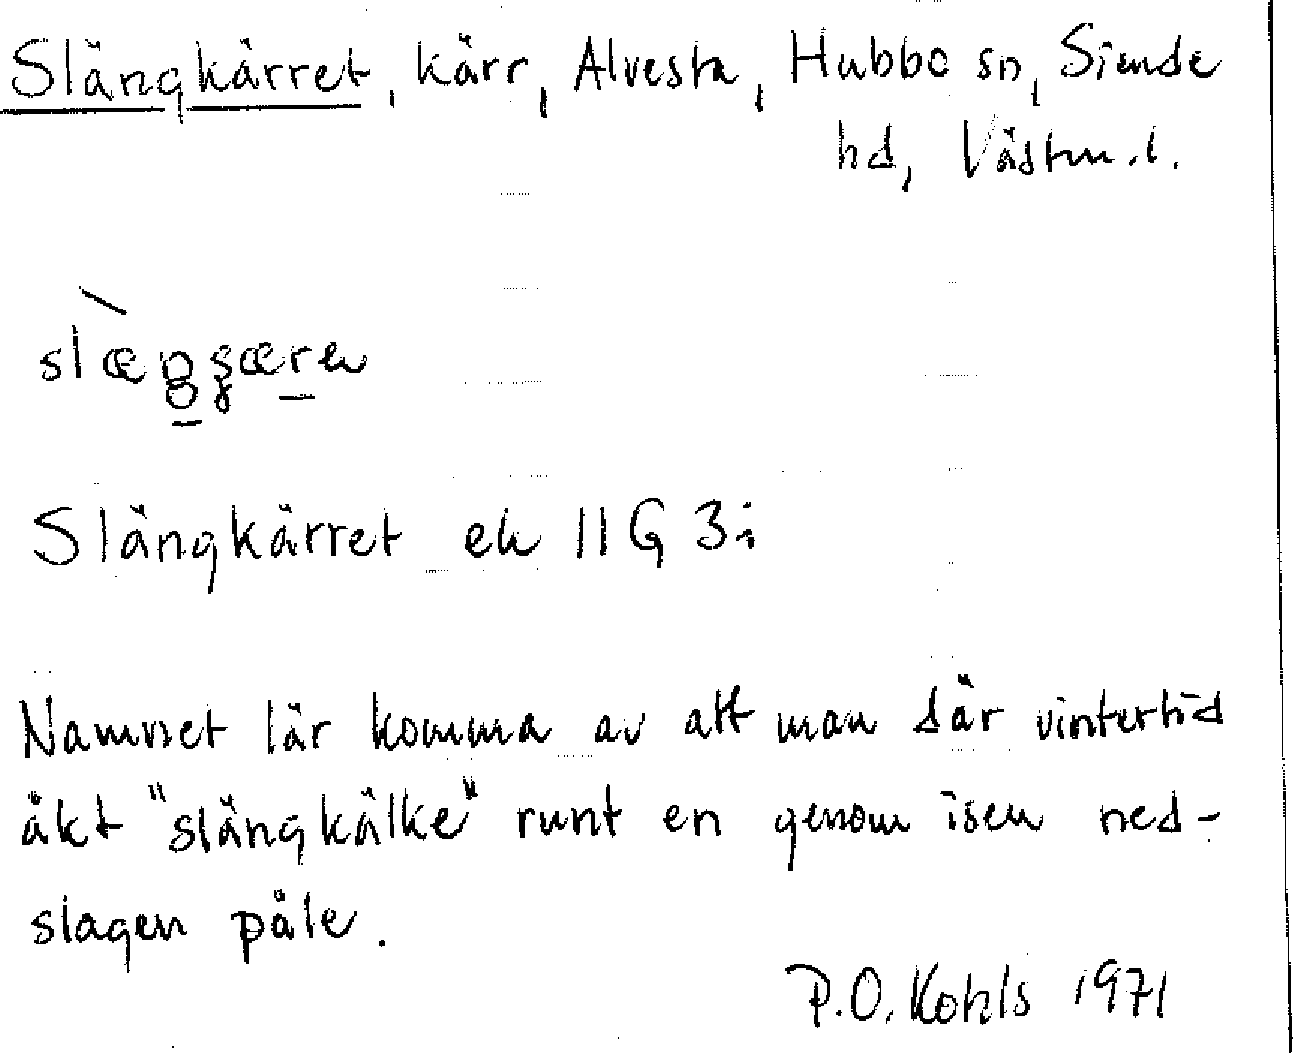 Slängkärret, kärr, Alvesta, Hubbo sn, Siende
hd, Västm.l.
Slängkärret ek 11G 3i
Namnet lär komma av att man där vintertid
åkt "slängkälke" runt en genom isen ned-
slagen påle.
P.O. Kohls 1971